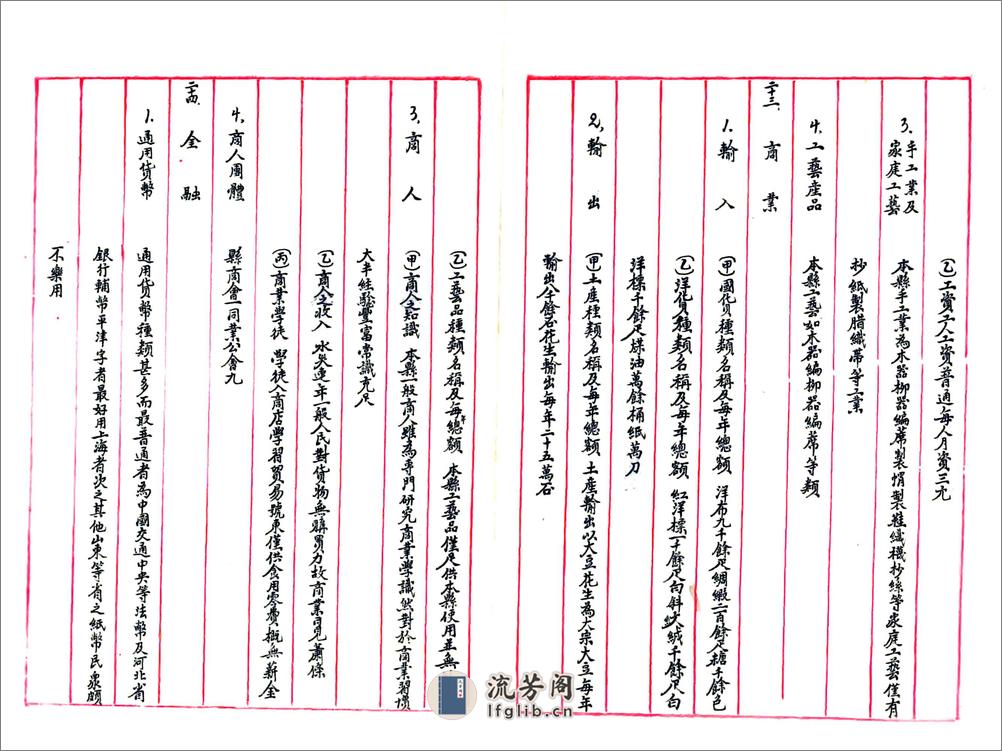 (乙)工資 工人工資普通每人月資三元
3. 手工業及家庭工藝 本縣手工業為木器柳器編席製帽製鞋織襪抄絲等家庭工藝僅有
抄紙製腊織帶等工業
4. 工藝產品 本縣工藝如木器編柳器編席等類
二十三. 商業
1. 輸入 (甲)國貨種類名稱及每年總額 洋布九千餘疋綢緞二百餘疋糖千餘包
(乙)洋貨種類名稱及每年總額 紅洋標一千餘疋白斜文絨千餘疋白
洋標千餘疋煤油萬餘桶紙萬刀
2. 輸出 (甲)土產種類名稱及每年總額 土產輸出以大豆花生為大宗大豆每年
輸出八千餘石花生輸出每年二十五萬石
(乙)工藝品種類名稱及每年總額 本縣工藝品僅足供本縣使用並無
3. 商人 (甲)商人之知識 本縣一般商人雖為專門研究商業學識然對於商業習慣
大半經驗豐富常識充足
(乙)商人之收入 水災連年一般人民對貨物無購買力故商業日見蕭條
(丙)商業學徒 學徒入商店學習貿易號東僅供食用零費概無薪金
4. 商人團體 縣商會一同業公會九
二十四. 金融
1. 通用貨幣 通用貨幣種類甚多而最普通者為中國交通中央等法幣及河北省
銀行輔幣平津字者最好用上海者次之其他山東等省之紙幣民眾頗
不樂用
流芳阁
lfglib.cn